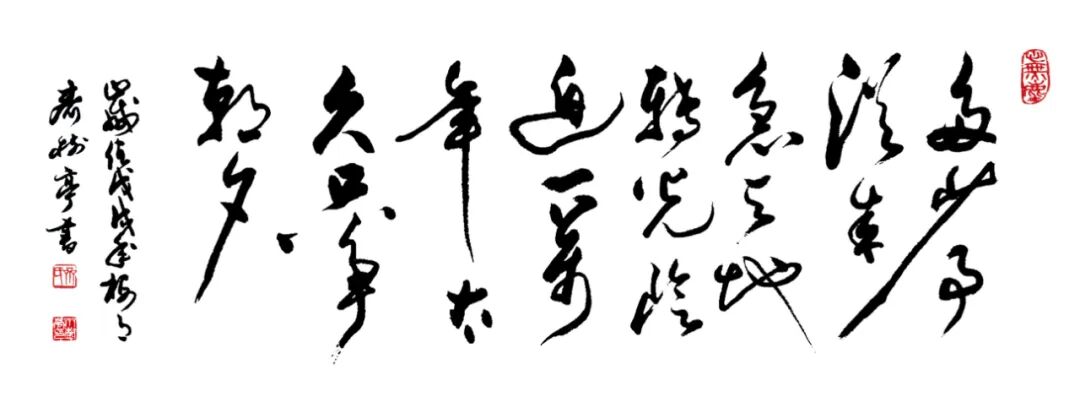 多少事
從來
急天地
轉光陰
迫一萬
年太
久只爭
朝夕
歲值戊戌年梅月
樹亭書